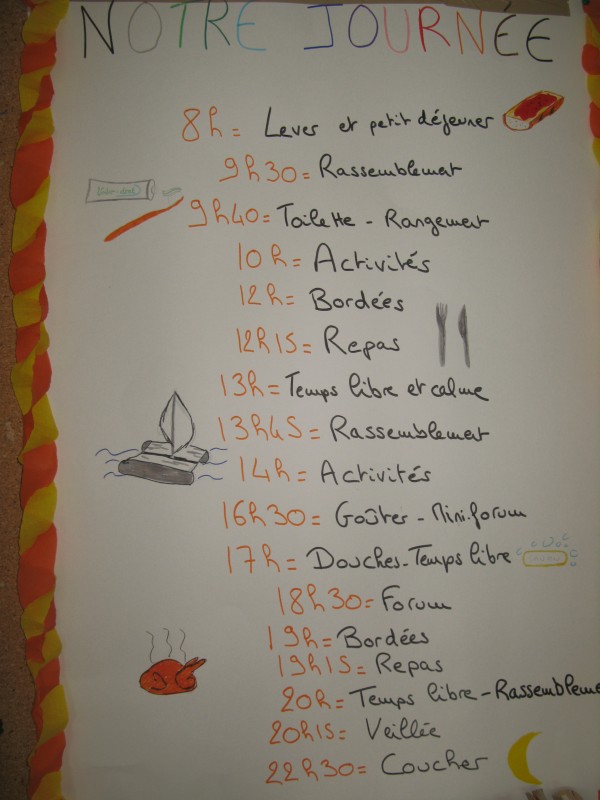 NOTRE JOURNÉE
8h = Lever et petit déjeuner
9h30 = Rassemblement
9h40 = Toilette - Rangement
10h = Activités
12h = Bordées
12h15 = Repas
13h = Temps libre et calme
13h45 = Rassemblement
14h = Activités
16h30 = Goûter - Mini-forum
17h = Douches - Temps libre
18h30 = Forum
19h = Bordées
19h15 = Repas
20h = Temps libre - Rassembleme
20h15 = Veillée
22h30 = Coucher